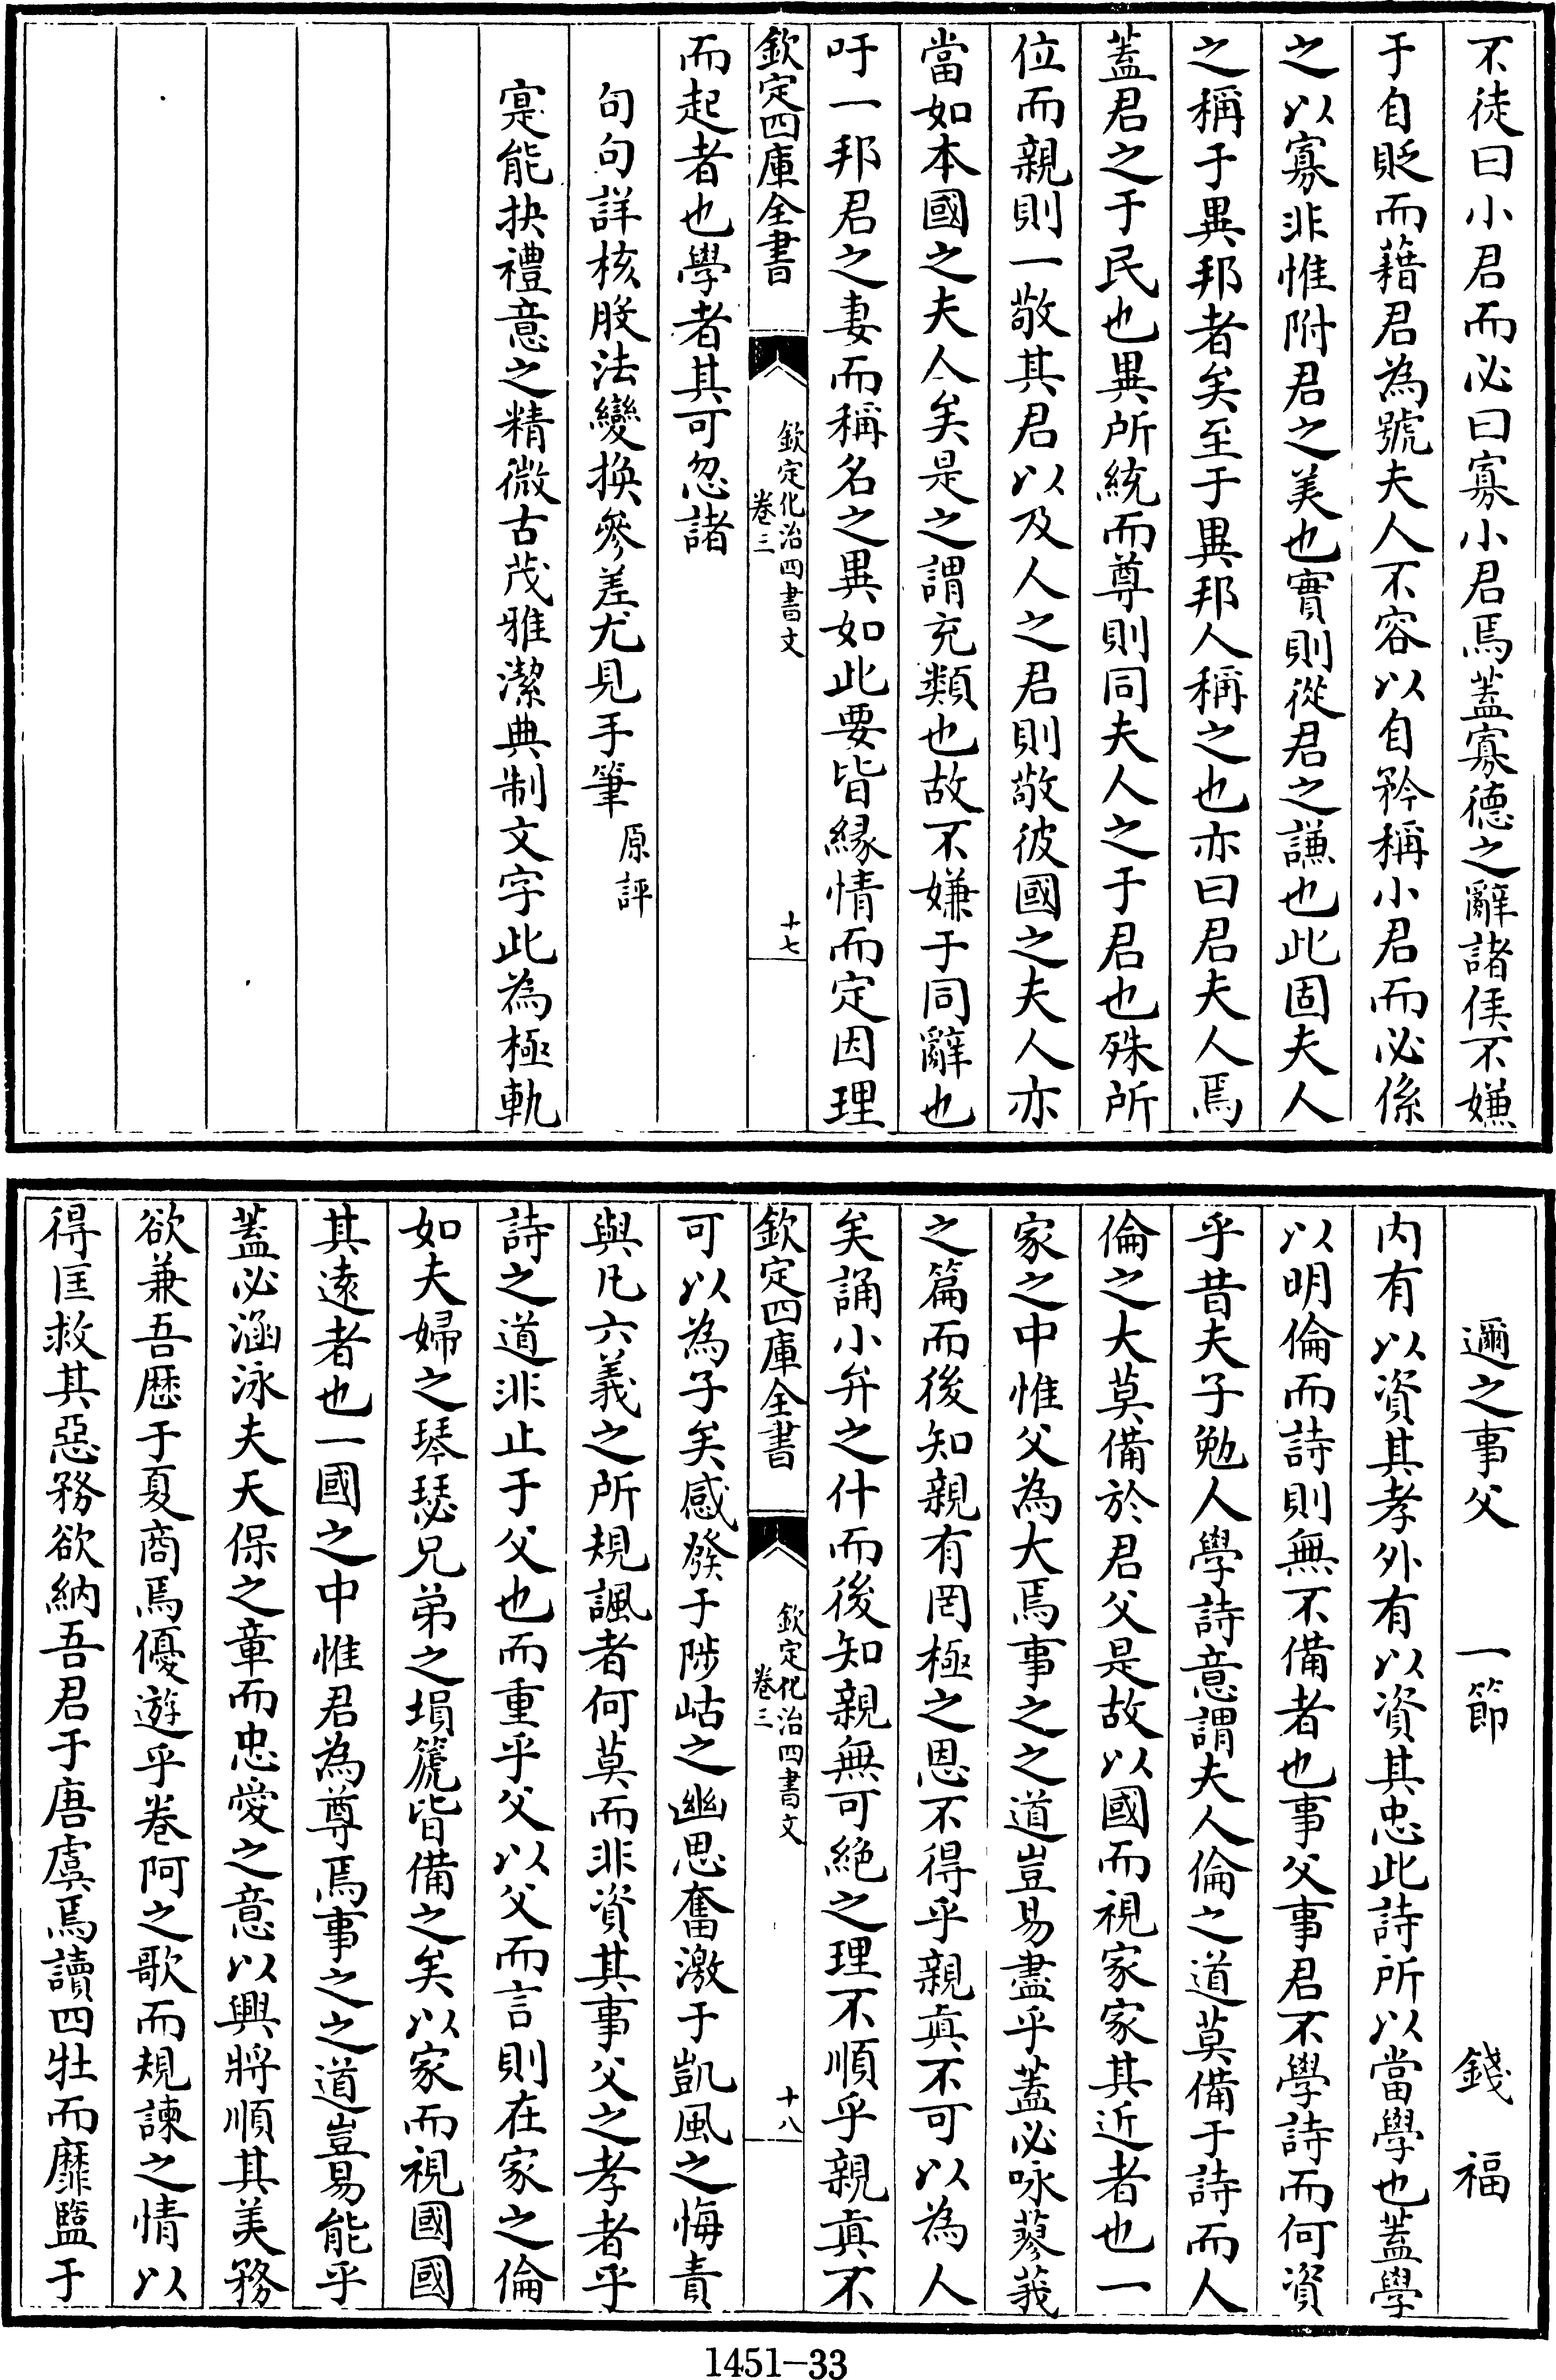 不徒曰小君而必曰寡小君焉蓋寡德之辭諸侯不嫌
于自貶而藉君為號夫人不容以自矜稱小君而必係
之以寡非惟附君之美也實則從君之謙也此固夫人
之稱于異邦者矣至于異邦人稱之也亦曰君夫人焉
蓋君之于民也異所統而尊則同夫人之于君也殊所
位而親則一敬其君以及人之君則敬彼國之夫人亦
當如本國之夫人矣是之謂充類也故不嫌于同辭也
吁一邦君之妻而稱名之異如此要皆緣情而定因理
欽定四庫全書
欽定化治四書文
卷三
十七
而起者也學者其可忽諸
句句詳核股法變換參差尤見手筆原評
寔能抉禮意之精微古茂雅潔典制文字此為極軌
邇之事父 一節 錢福
内有以資其孝外有以資其忠此詩所以當學也蓋學
以明倫而詩則無不備者也事父事君不學詩而何資
乎昔夫子勉人學詩意謂夫人倫之道莫備于詩而人
倫之大莫備於君父是故以國而視家家其近者也一
家之中惟父為大焉事之之道豈易盡乎蓋必咏蓼莪
之篇而後知親有罔極之恩不得乎親真不可以為人
矣誦小弁之什而後知親無可絶之理不順乎親真不
欽定四庫全書
欽定化治四書文
卷三
十八
可以為子矣感發于陟岵之幽思奮激于凱風之悔責
與凡六義之所規諷者何莫而非資其事父之孝者乎
詩之道非止于父也而重乎父以父而言則在家之倫
如夫婦之琴瑟兄弟之塤篪皆備之矣以家而視國國
其遠者也一國之中惟君為尊焉事之之道豈易能乎
蓋必涵泳夫天保之章而忠愛之意以興將順其美務
欲兼吾歴于夏商焉優遊乎卷阿之歌而規諫之情以
得匡救其惡務欲納吾君于唐虞焉讀四牡而靡盬于
1451-33